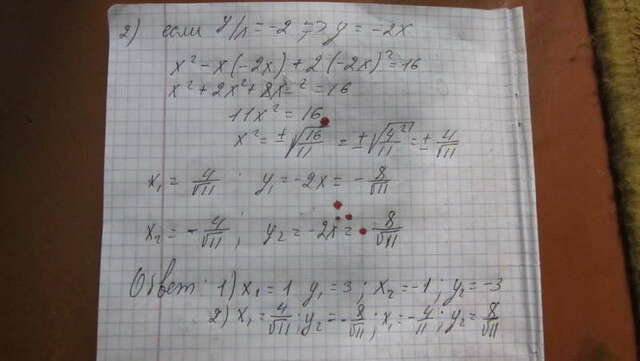 2) если y/x = -2 => y = -2x
x² - x(-2x) + 2(-2x)² = 16
x² + 2x² + 8x² = 16
11x² = 16
x² = ±√16/11 = ±√4²/11 = ±4/√11
x₁ = 4/√11 ; y₁ = -2x = -8/√11
x₂ = -4/√11 ; y₂ = -2x = 8/√11
Ответ: 1) x₁ = 1 y₁ = 3 ; x₂ = -1 ; y₂ = -3
2) x₁ = 4/√11 ; y₂ = -8/√11 ; x₁ = -4/√11 ; y₂ = 8/√11